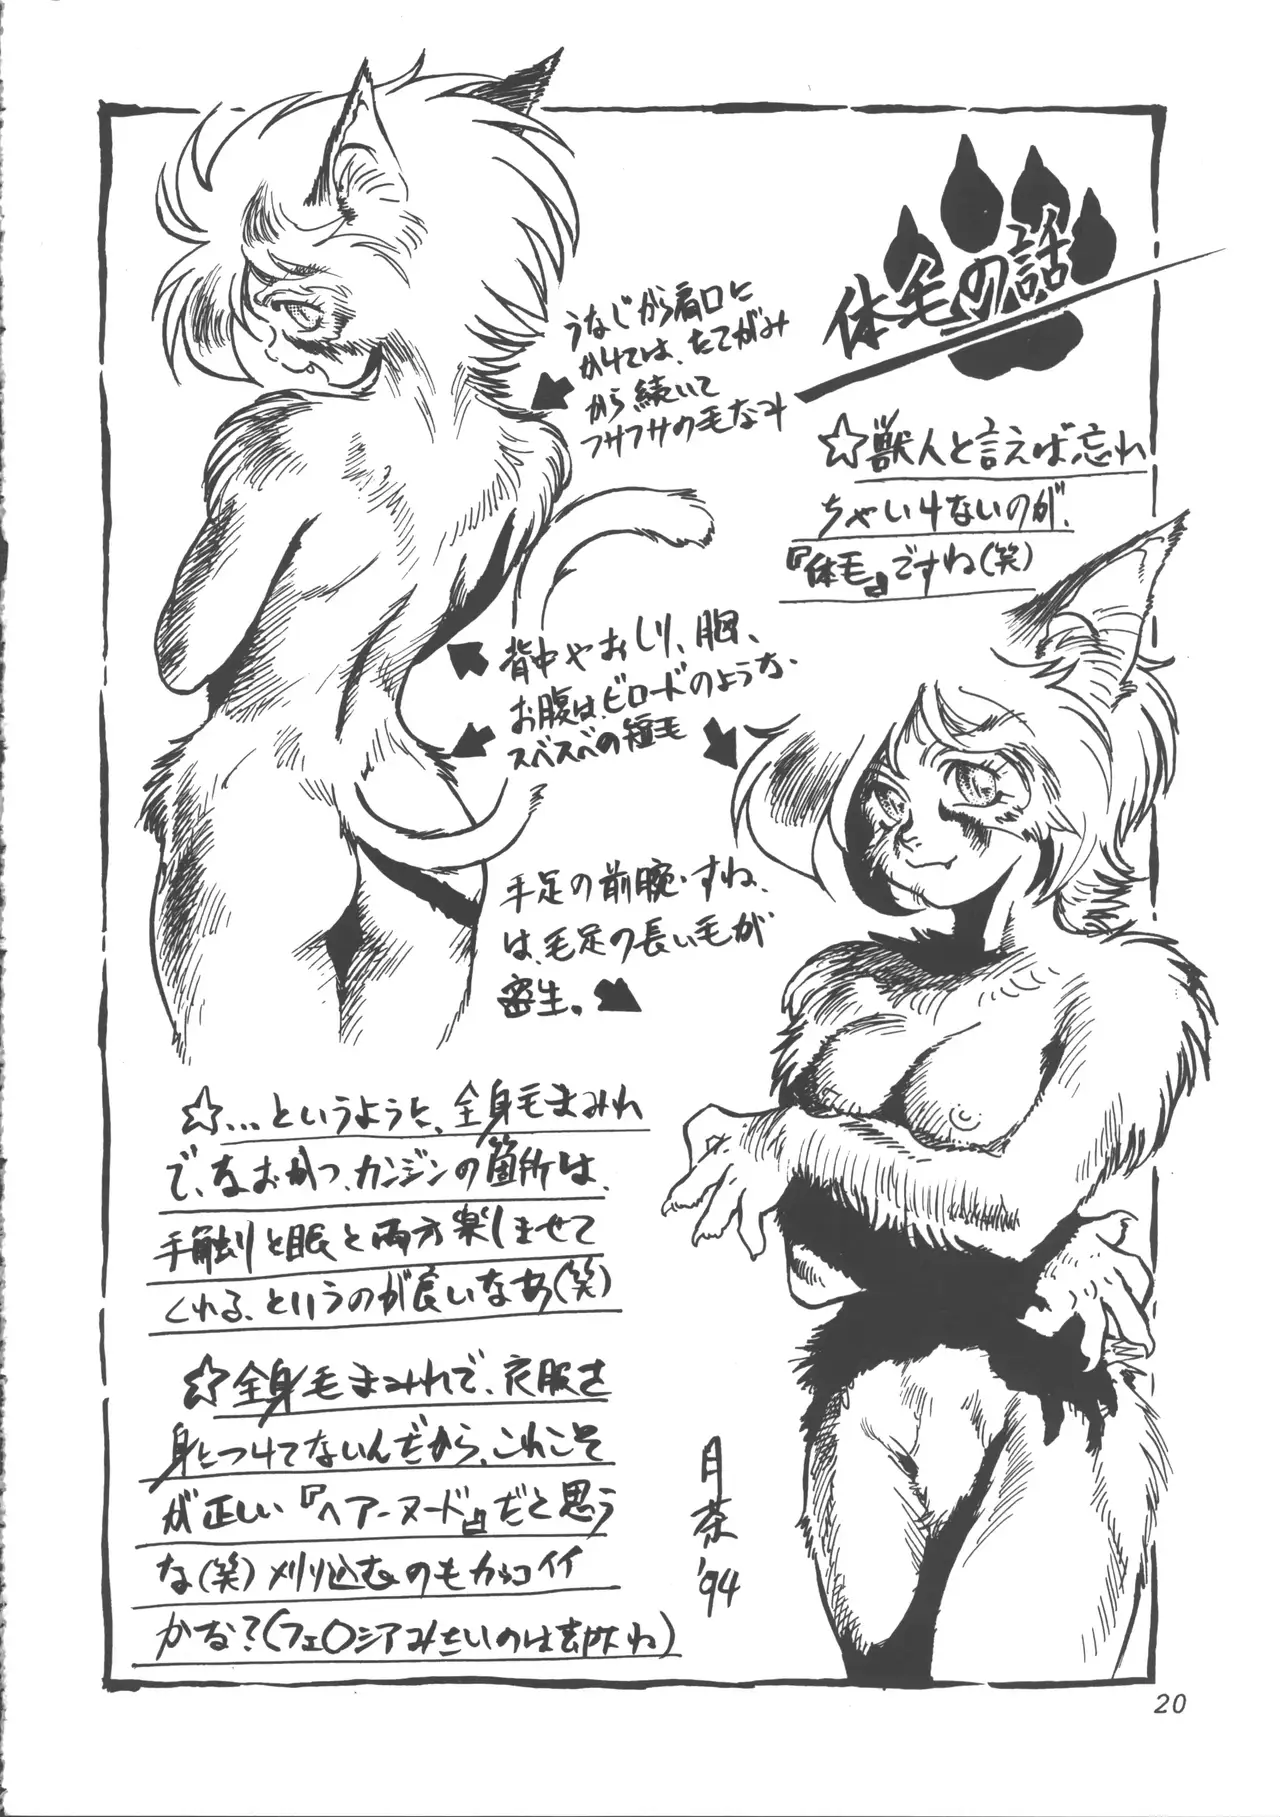 体毛の話
☆獣人と言えば忘れ
ちゃいけないのが、
『体毛』ですね(笑)
うなじから肩口に
かけては、たてがみ
から続いて
フサフサの毛なみ
背中やおしり、胸、
お腹は、ビロードのような、
スベスベの短毛
手足の前腕・すね、
は、毛足の長い毛が
密生。
☆…というように、全身毛まみれ
で、なおかつ、カンジンの箇所は、
手触りと眼と両方楽しませて
くれる、というのが良いなあ(笑)
☆全身毛まみれで、衣服を
身につけてないんだから、これこそ
が正しい『ヘアーヌード』だと思う
な(笑)刈り込むのもカッコイイ
かな?(フェ○シアみたいのは
月茶
'94
20